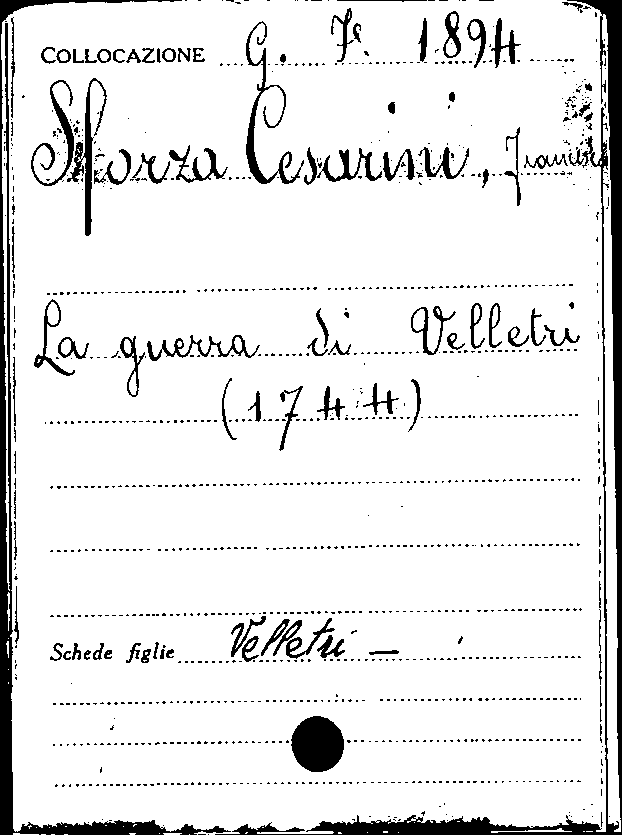 COLLOCAZIONE G. Fe. 1894
Sforza Cesarini, Francesco
La guerra di Velletri
(1744)
Schede figlie Velletri —